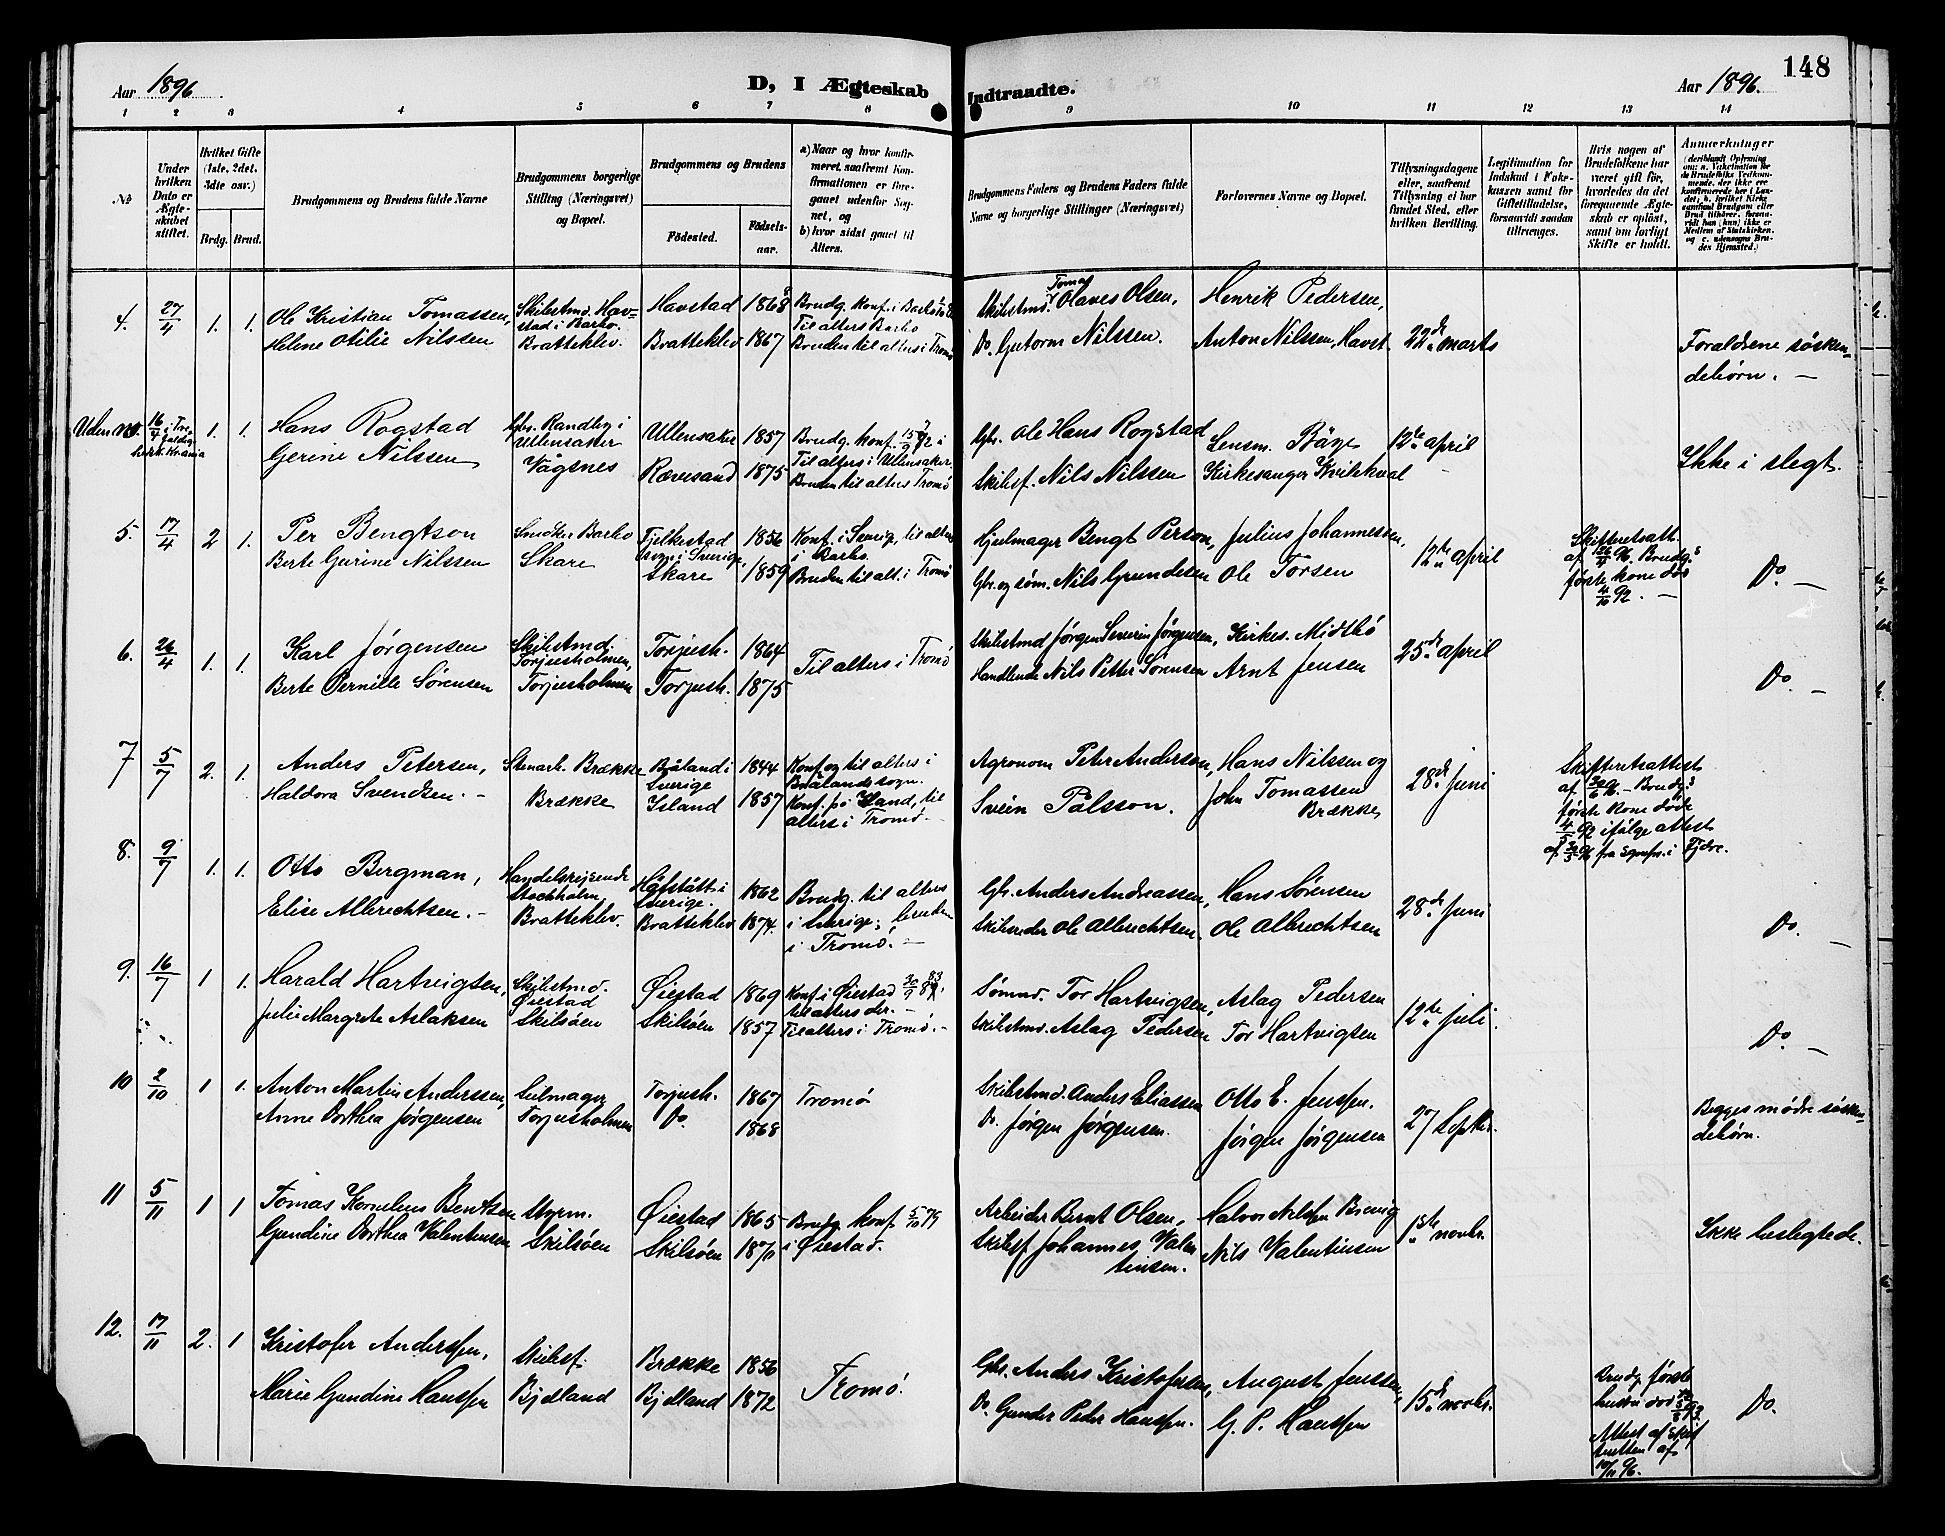 148
Aar 1896
D, I Ægteskab Indtraadte.
Aar 1896.
1 2 3 4 5 6 7 8 9 10 11 12 13 14
No
Under hvilken Dato er Ægteskabet stiftet.
Hvilket Gifte (1ste, 2det, 3die osv.)
Brdg. Brud.
Brudgommens og Brudens fulde Navne
Brudgommens borgerlige Stilling (Næringsvei) og Bopæl.
Brudgommens og Brudens
Fødested.
Fødselsaar.
a) Naar og hvor konfirmeret, saafremt Konfirmationen er foregaaet udenfor Sognet, og
b) hvor sidst gaaet til Alters.
Brudgommens Faders og Brudens Faders fulde Navne og borgerlige Stillinger (Næringsvei)
Forlovernes Navne og Bopæl.
Tillysningsdagene eller, saafremt Tillysning ei har fundet Sted, efter hvilken Bevilling.
Legitimation for Indskud i Enkekassen samt for Giftetilladelse, forsaavidt saadan tiltrænges.
Hvis nogen af Brudefolkene har været gift før, hvorledes da det foregaaende Ægteskab er opløst, samt om lovligt Skifte er holdt.
Anmærkninger
4. 27/4 1. 1.
Ole Kristian Tomassen,
Helene Otilie Nilssen
Skibstmd. Havstad i Barbo.
Bratteklev.
Havstad 1868
Bratteklev 1867
Brudg. konf. i Barbo
Til alters Barbo
Bruden til alters i Tromø
Skibstmd. Tomas Olaves Olsen,
Do. Gutorm Nilssen.
Henrik Pedersen,
Anton Nilssen, Havst.
22de marts
Forældrene søskendebørn. —
Uden no. 16/4 1. 1.
Hans Rogstad
Gerine Nilssen
Gbr. Randby i Ullensaker
Vågsnes
Ullensaker 1857
Rævesand 1875
Brudg. konf. 15/9 72 i
Til alters i Ullensaker.
Bruden til alters Tromø
Gbr. Ole Hans Rogstad
Skibsf. Nils Nilssen
Lensm. Bøge
Kirkesanger Kvilekval
12te april
Ikke i slegt.
5. 17/4 2 1.
Per Bengtson
Berte Gurine Nilssen
Snedker Barbo
Skare
Fjelkestad sogn i Sverige, 1856
Skare 1859
Konf. i Sverig, til alters
i Barbo
Bruden til alt. i Tromø
Hjulmager Bengt Person,
Gbr. og søm. Nils Gundesen
Julius Johannessen,
Ole Torsen
12te april
Skifteretsatt.
af 26/4 96. Brudg.s
første kone død
4/10 92. —
Do. —
6. 26/4 1. 1.
Karl Jørgensen
Berte Pernille Sørensen
Skibstmd.
Torjusholmen,
Torjusholmen
Torjush. 1864
Torjush. 1875
Til alters i Tromø
Skibstmd Jørgen Severin Jørgensen,
Handlende Nils Petter Sørensen
Kirkes. Midtbø
Arnt Jensen
25de april
Do. —
7 5/7 2. 1.
Anders Petersen,
Haldora Svendsen. —
Stenarb. Brække
Brække
Båland i Sverige 1844
Island 1857
Konf og til alters i
Brålands sogn.
Konf. på Island, til
alters i Tromø. —
Agronom Peter Anderson,
Svein Pålsson.
Hans Nilssen og
John Tomassen
Brække
28de juni
Skifteretsattest
af 30/6 96. – Brudg.s
første kone døde
4/5 92 ifølge attest
af 30/5 96 fra Sognepr. i Fjære.
8. 9/7 1. 1.
Otto Bergman,
Elise Albrechtsen. —
Handelsreisende
Stockholm,
Bratteklev.
Håfstått i Sverige. 1862
Bratteklev 1874.
Brudg. til alters
i Sverige; bruden
i Tromø. —
Gbr. Anders Andreassen,
Skibsreder Ole Albrechtsen.
Hans Sørensen
Ole Albrechtsen
28de juni
Do. —
9. 16/7 1 1.
Harald Hartvigsen,
Julie Margrete Aslaksen
Skibstmd.
Øiestad
Skilsøen
Øiestad 1869
Skilsøen 1857
Konf. i Øiestad 30/9 83
til alters der. —
Til alters i Tromø. —
Sømnd. Tor Hartvigsen,
Skibstmd. Aslag Pedersen
Aslag Pedersen
Tor Hartvigsen
12te juli.
Do. —
10 2/10 1 1.
Anton Martin Anderssen,
Anne Dorthea Jørgensen
Seilmager
Torjusholmen
Torjush. 1867
Do. 1868
Tromø
Skibstmd. Anders Eliassen
Do. Jørgen Jørgensen.
Otto E. Jenssen.
Jørgen Jørgensen
27 Septbr.
Begges mødre søskendebørn.
11 5/11 1 1
Tomas Kornelius Bentsen
Gundine Dorthea Valentinsen
Styrm.
Skilsøen
Øiestad 1865
Skilsøen 1870
Brudg. konf. 5/10 79
i Øiestad.
Arbeider Bernt Olsen,
Skibsf Johannes Valentinsen.
Halvor Nilssen Brevig
Nils Valentinsen
1ste novbr.
Ikke beslegtede.
12. 17/11 2. 1
Kristofer Anderssen,
Marie Gundine Hanssen
Skibsf.
Bjelland
Brække 1856
Bjelland 1872
Tromø.
Gbr. Anders Kristofersen,
Do. Gunder Peder Hanssen.
August Jenssen,
G. P. Hanssen
15de novbr.
Brudg. første
hustru død
Attest af Skifteretten af
10/11 96.
Do.